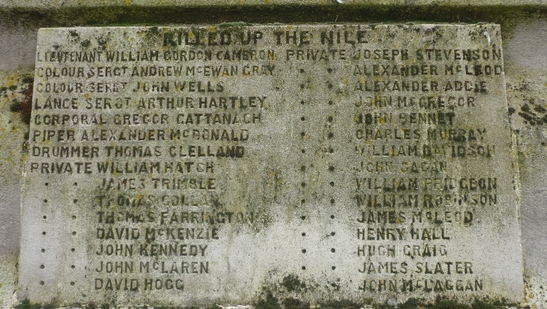 KILLED UP THE NILE
LIEUTENANT WILLIAM GORDON CAMERON
COLOUR SERGT ANDREW McEWAN GRAY
COLOUR SERGT JOHN WELLS
LANCE SERGT ARTHUR HARTLEY
CORPORAL GREGOR CATTANACH
PIPER ALEXANDER McDONALD
DRUMMER THOMAS CLELLAND
PRIVATE WILLIAM HATCH
" " JAMES TRIMBLE
" " THOMAS
" " THOMAS FARRINGTON
" " DAVID McKENZIE
" " JOHN KENNEDY
" " JOHN McLAREN
" " DAVID HOGG
PRIVATE JOSEPH STEVENSON
" " ALEXANDER McLEOD
" " ALEXANDER ADDIE
" " JOHN McGREGOR
" " JOHN BENNET
" " CHARLES MURRAY
" " WILLIAM DAVIDSON
" " JOHN
" " WILLIAM
" " WILLIAM ROBINSON
" " JAMES McLEOD
" " HENRY HALL
" " HUGH CRAIG
" " JAMES SLATER
" " JOHN McLAGGAN